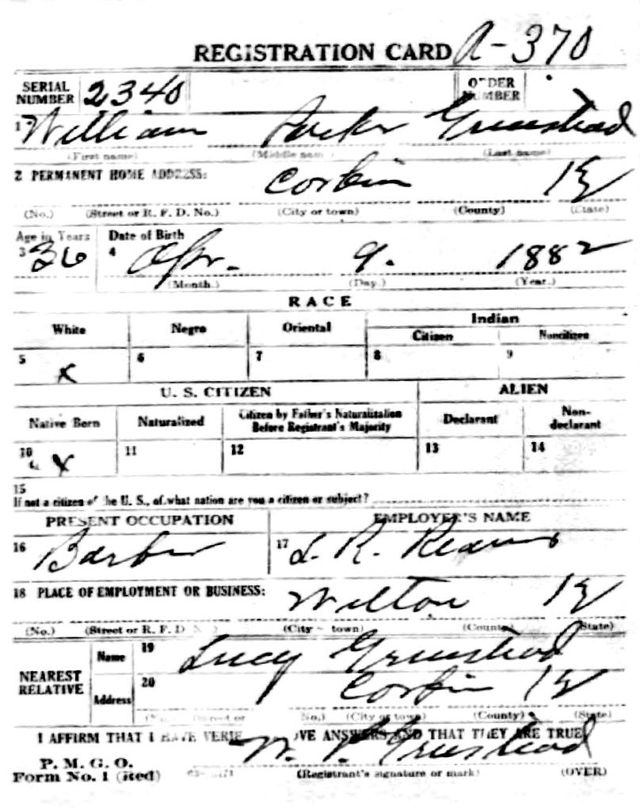 REGISTRATION CARD A-370
SERIAL NUMBER 2340 ORDER NUMBER
1 William Parker Grinstead
(First name) (Middle name) (Last name)
2 PERMANENT HOME ADDRESS: Corbin Ky
(No.) (Street or R. F. D. No.) (City or town) (County) (State)
Age in Years Date of Birth
3 36 4 Apr. 9. 1882
(Month.) (Day.) (Year.)
RACE
White Negro Oriental Indian
Citizen Noncitizen
5 x 6 7 8 9
U. S. CITIZEN ALIEN
Native Born Naturalized Citizen by Father's Naturalization Before Registrant's Majority Declarant Non-declarant
10 x 11 12 13 14
15
If not a citizen of the U. S., of what nation are you a citizen or subject?
PRESENT OCCUPATION EMPLOYER'S NAME
16 Barber 17 L. R.
18 PLACE OF EMPLOYMENT OR BUSINESS: Wilton Ky
(No.) (Street or R. F. D (City town) (County) (State)
NEAREST RELATIVE Name 19 Lucy Grinstead
Address 20 Corbin Ky
(Street or No.) (City or town) (County) (State)
I AFFIRM THAT I HAVE VERIF OVE ANSWERS AND THAT THEY ARE TRUE
P. M. G. O. W. P. Grinstead
Form No. 1 (ited) (Registrant's signature or mark) (OVER)